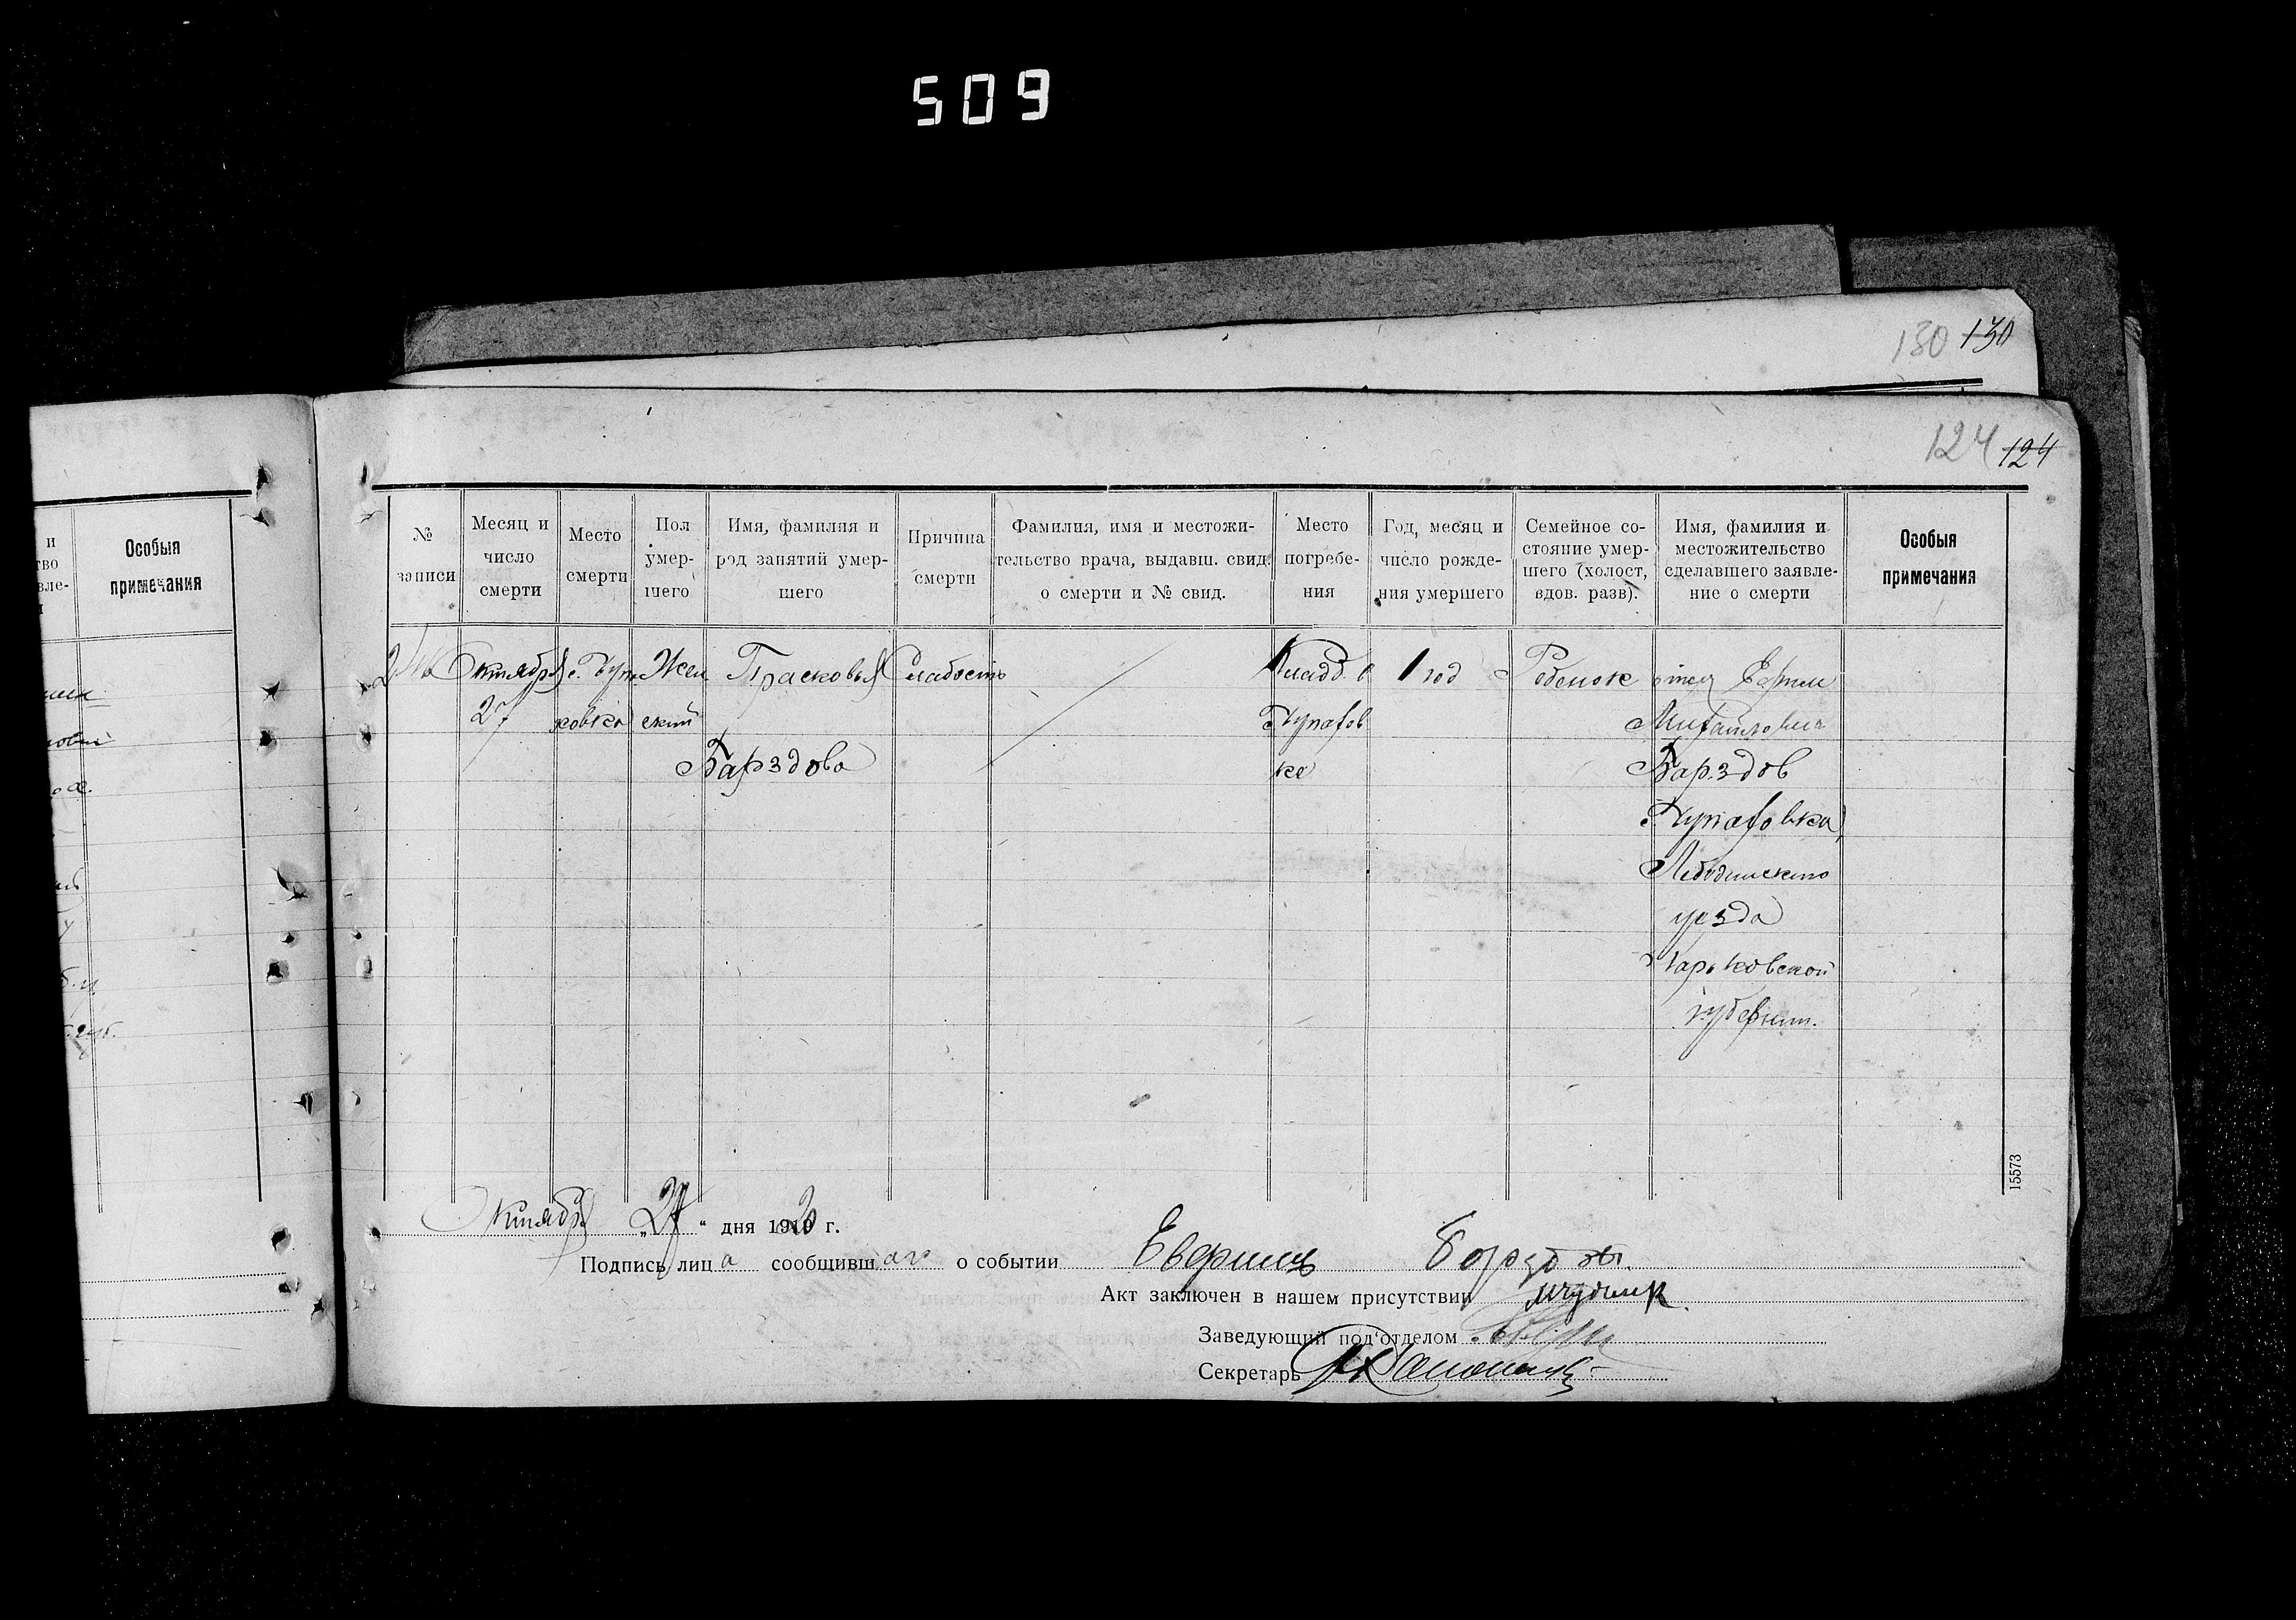 509
130 130
124 124
и
тво
вле-
Особыя
примечания
№
записи
Месяц и
число
смерти
Место
смерти
Пол
умер-
шего
Имя, фамилия и
род занятий умер-
шего
Причина
смерти
Фамилия, имя и местожи-
тельство врача, выдавш. свид.
о смерти и № свид.
Место
погребе-
ния
Год, месяц и
число рожде-
ния умершего
Семейное со-
стояние умер-
шего (холост,
вдов. разв).
Имя, фамилия и
местожительство
сделавшего заявле-
ние о смерти
Особыя
примечания
Октября
27
ховка
Жен
ский
Прасковья
Барздова
Слабость
Кладб.
ке
1 год
Ребенок
отец Ефим
Михайлович
Барздов
Лебединского
уезда
Харьковской
губернии.
15573
Октября „27 “ дня 1920 г.
Подпись лица сообщивш о событии
Акт заключен в нашем присутствии
Заведующий под'отделом
Секретарь